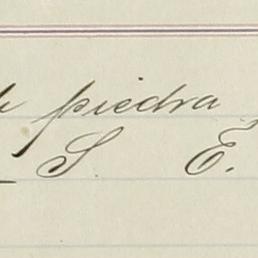 piedra
S. E.